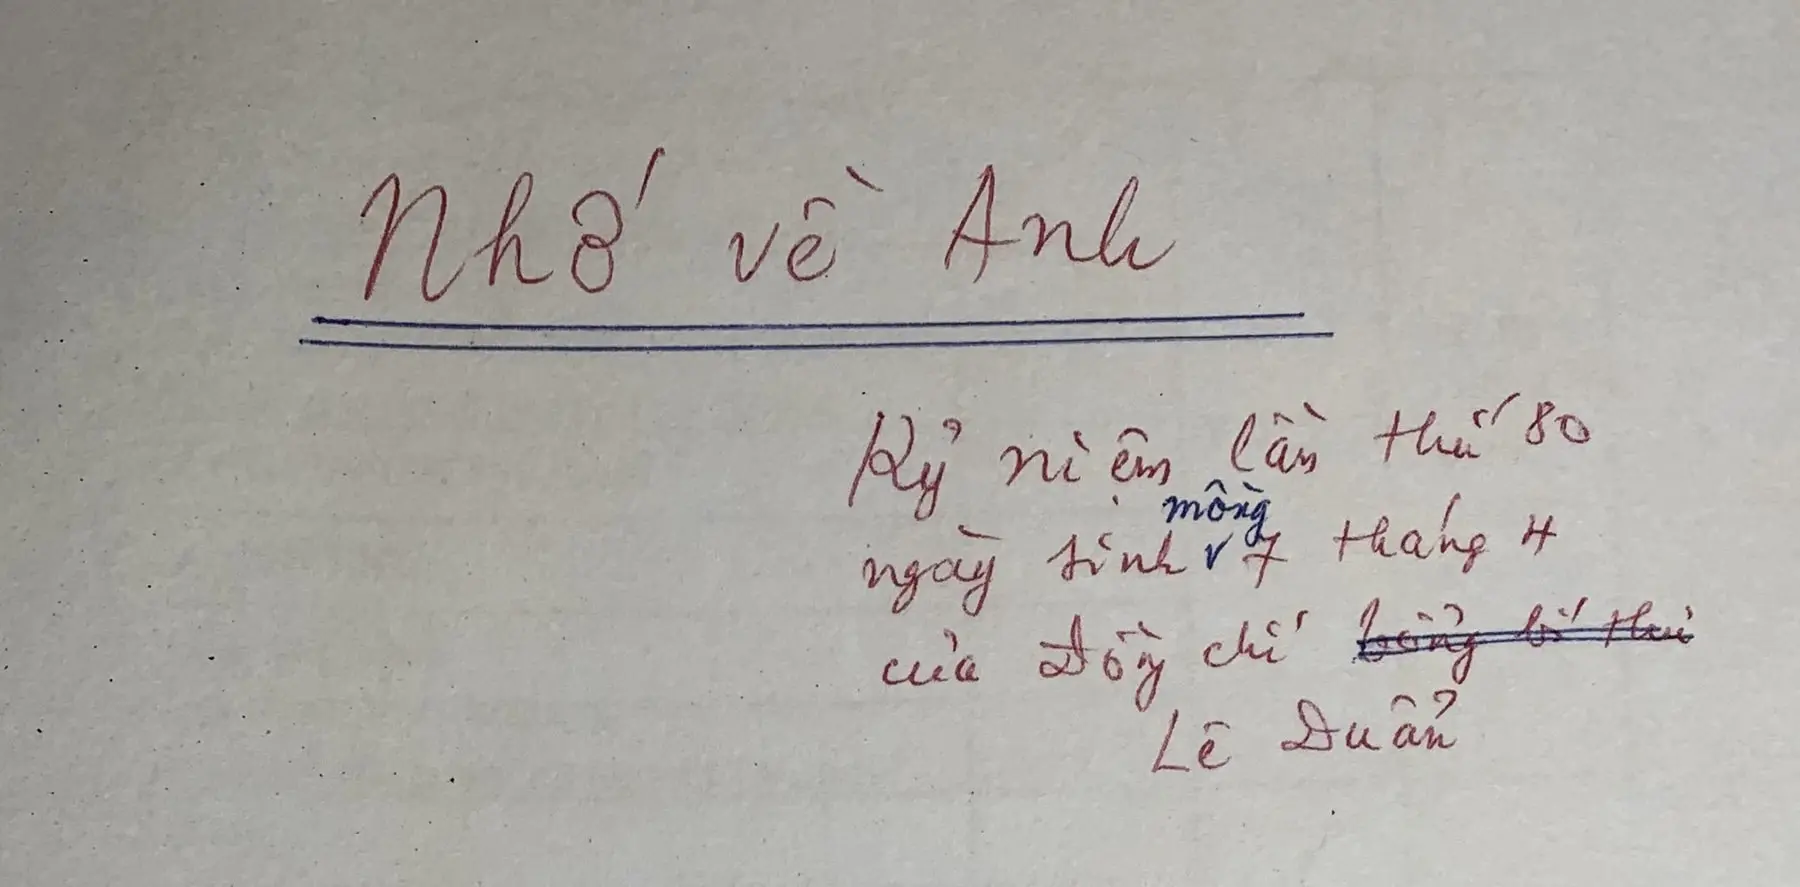 Nhớ về Anh
Kỷ niệm lần thứ 80
ngày sinh mồng 7 tháng 4
của Đồng chí tổng bí thư
Lê Duẩn